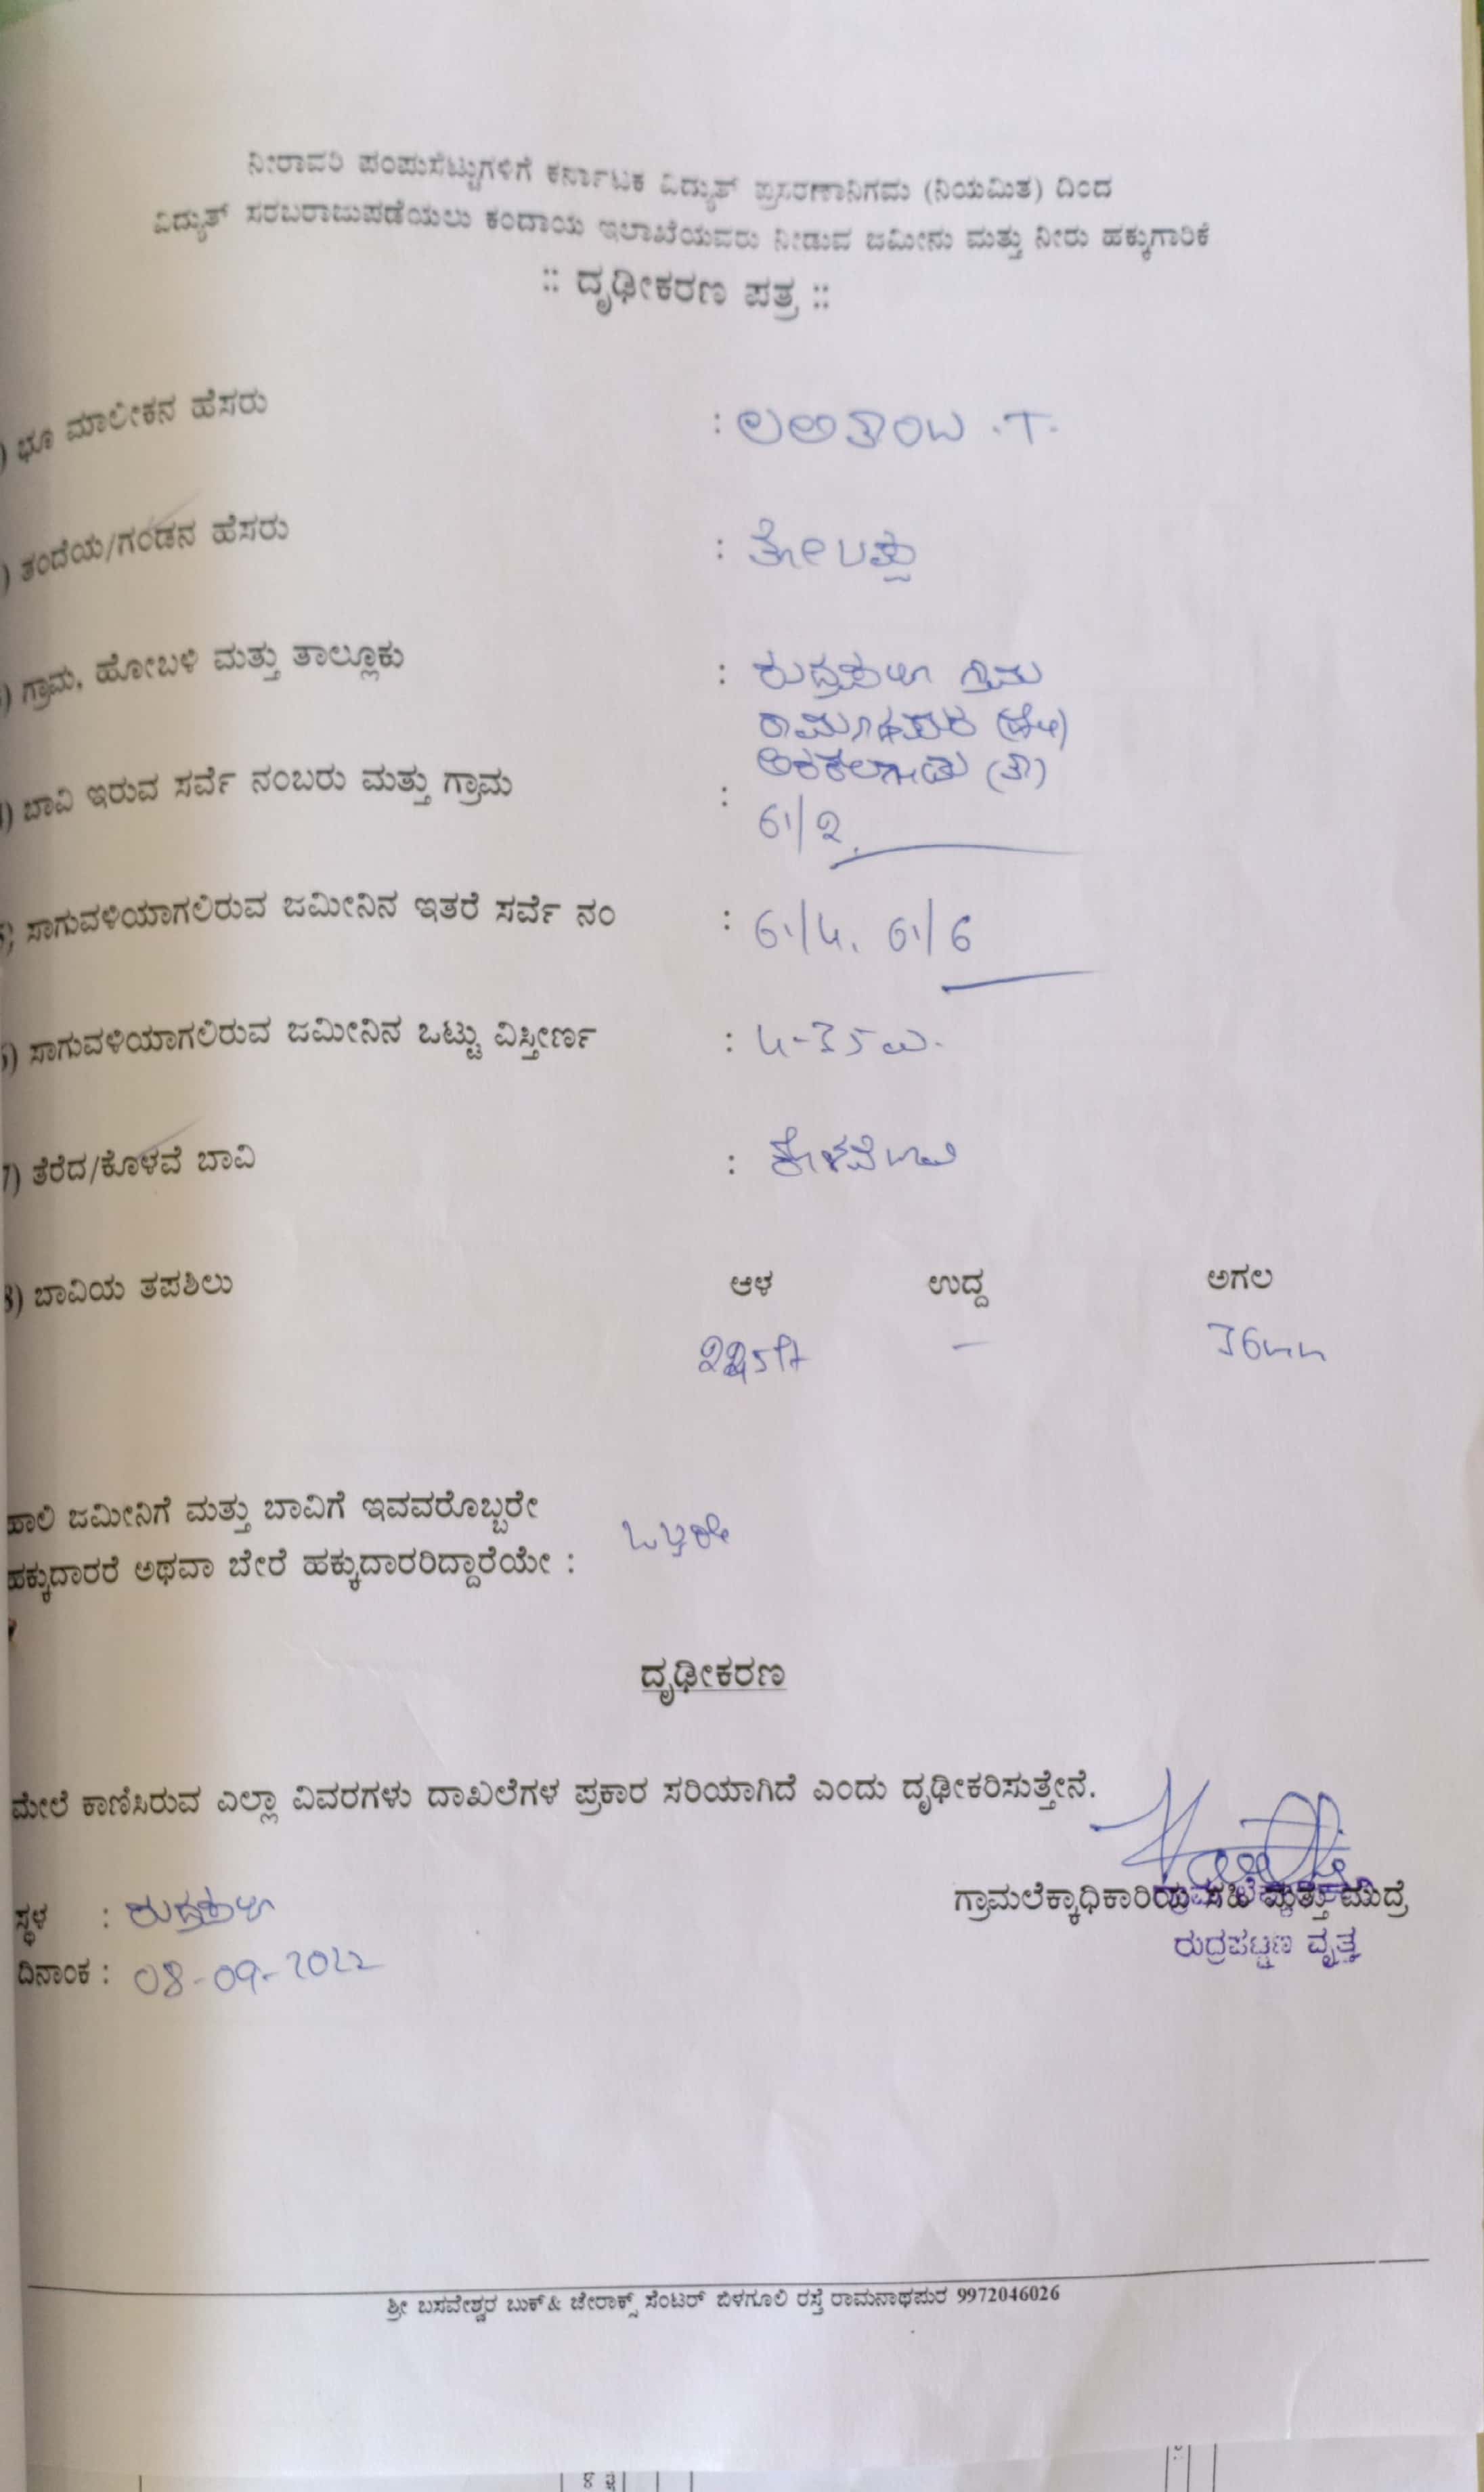 ನೀರಾವರಿ ಪಂಪುಸೆಟ್ಟುಗಳಿಗೆ ಕರ್ನಾಟಕ ವಿದ್ಯುತ್ ಪ್ರಸರಣಾನಿಗಮ (ನಿಯಮಿತ) ದಿಂದ
ವಿದ್ಯುತ್ ಸರಬರಾಜುಪಡೆಯಲು ಕಂದಾಯ ಇಲಾಖೆಯವರು ನೀಡುವ ಜಮೀನು ಮತ್ತು ನೀರು ಹಕ್ಕುಗಾರಿಕೆ
:: ದೃಢೀಕರಣ ಪತ್ರ ::
) ಭೂ ಮಾಲೀಕನ ಹೆಸರು : ಲಲಿತಾಂಬ .T.
) ತಂದೆಯ/ಗಂಡನ ಹೆಸರು :
) ಗ್ರಾಮ, ಹೋಬಳಿ ಮತ್ತು ತಾಲ್ಲೂಕು : ಗ್ರಾಮ
ರಾಮನಾಥಪುರ (ಹೋ)
ಅರಕಲಗೂಡು (ತಾ)
) ಬಾವಿ ಇರುವ ಸರ್ವೆ ನಂಬರು ಮತ್ತು ಗ್ರಾಮ :
61/2
) ಸಾಗುವಳಿಯಾಗಲಿರುವ ಜಮೀನಿನ ಇತರೆ ಸರ್ವೆ ನಂ : 61/4, 61/6
) ಸಾಗುವಳಿಯಾಗಲಿರುವ ಜಮೀನಿನ ಒಟ್ಟು ವಿಸ್ತೀರ್ಣ : 4-35
7) ತೆರೆದ/ಕೊಳವೆ ಬಾವಿ : ಕೊಳವೆ ಬಾವಿ
8) ಬಾವಿಯ ತಪಶಿಲು ಆಳ ಉದ್ದ ಅಗಲ
—
ಹಾಲಿ ಜಮೀನಿಗೆ ಮತ್ತು ಬಾವಿಗೆ ಇವವರೊಬ್ಬರೇ
ಹಕ್ಕುದಾರರೆ ಅಥವಾ ಬೇರೆ ಹಕ್ಕುದಾರರಿದ್ದಾರೆಯೇ : ಒಬ್ಬರೇ
ದೃಢೀಕರಣ
ಮೇಲೆ ಕಾಣಿಸಿರುವ ಎಲ್ಲಾ ವಿವರಗಳು ದಾಖಲೆಗಳ ಪ್ರಕಾರ ಸರಿಯಾಗಿದೆ ಎಂದು ದೃಢೀಕರಿಸುತ್ತೇನೆ.
ಗ್ರಾಮಲೆಕ್ಕಾಧಿಕಾರಿಯ ಸಹಿ ಮತ್ತು ಮುದ್ರೆ
ರುದ್ರಪಟ್ಟಣ ವೃತ್ತ
ಸ್ಥಳ :
ದಿನಾಂಕ : 08-09-2022
ಶ್ರೀ ಬಸವೇಶ್ವರ ಬುಕ್ & ಜೇರಾಕ್ಸ್ ಸೆಂಟರ್ ಬಿಳಗೂಲಿ ರಸ್ತೆ ರಾಮನಾಥಪುರ 9972046026